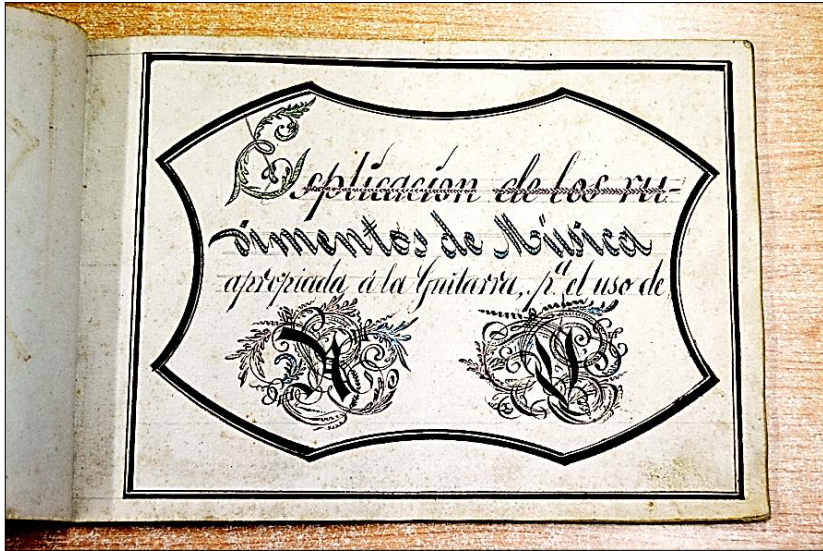 Esplicación de los ru-
dimentos de Música
apropiada á la Guitarra, p.ª el uso de